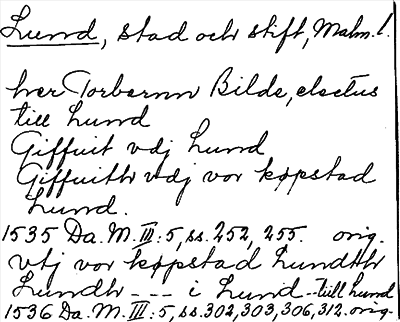 Lund, stad och stift, Malm. l.
her Torbernn Bilde, electus
till Lund
Giffuit vdj Lund
Giffuith vdj vor køpstad
Lund.
1535 Da. M. III: 5, ss. 252, 255. orig.
vtj vor køpstad Lundth
Lundh --- i Lund -- till Lund
1536 Da. M. III: 5, ss. 302, 303, 306, 312. orig.